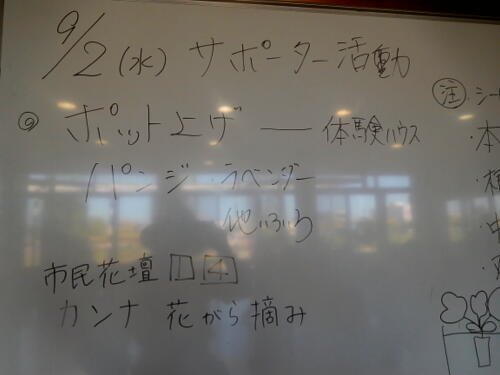 9/2(水) サポーター活動
◎ ポット上げ ― 体験ハウス
パンジ・ラベンダー
他いろいろ
市民花壇 1 4
カンナ 花がら摘み
注 ・シー
・本